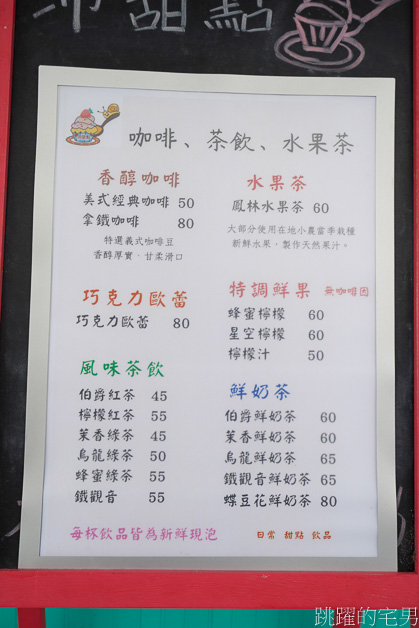 冰甜點
咖啡、茶飲、水果茶
香醇咖啡
美式經典咖啡 50
拿鐵咖啡 80
特選義式咖啡豆
香醇厚實、甘柔滑口
巧克力歐蕾
巧克力歐蕾 80
風味茶飲
伯爵紅茶 45
檸檬紅茶 55
茉香綠茶 45
烏龍綠茶 50
蜂蜜綠茶 55
鐵觀音 55
水果茶
鳳林水果茶 60
大部分使用在地小農當季栽種
新鮮水果，製作天然果汁。
特調鮮果 無咖啡因
蜂蜜檸檬 60
星空檸檬 60
檸檬汁 50
鮮奶茶
伯爵鮮奶茶 60
茉香鮮奶茶 60
烏龍鮮奶茶 65
鐵觀音鮮奶茶 65
蝶豆花鮮奶茶 80
每杯飲品皆為新鮮現泡
日常 甜點 飲品
跳躍的宅男